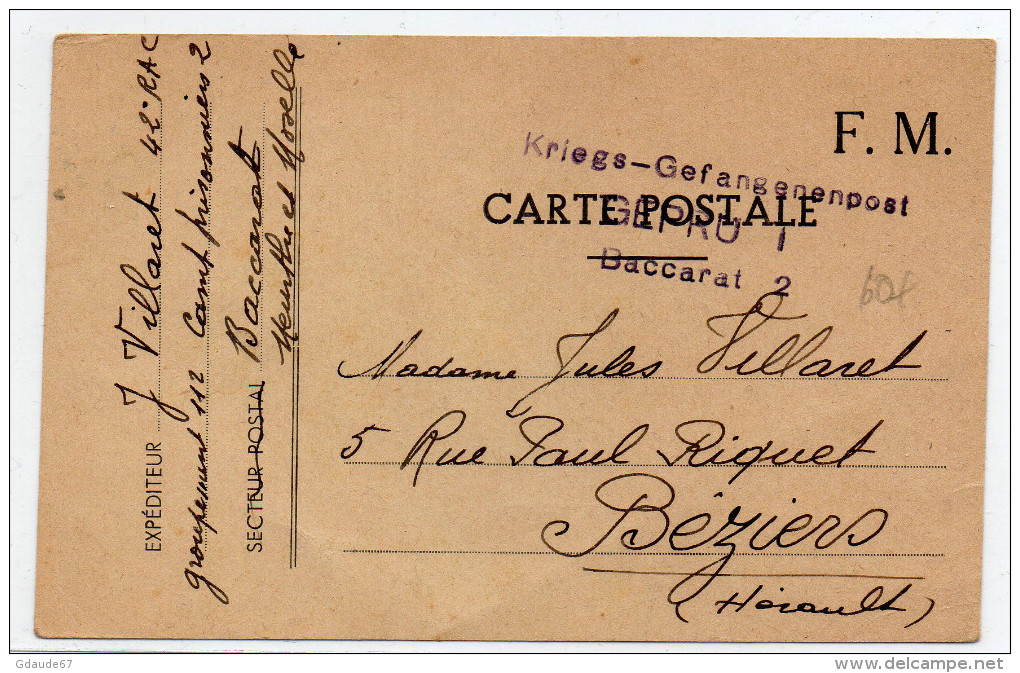 F. M.
Kriegs-Gefangenenpost
CARTE POSTALE
GEPRÜ 1
Baccarat 2
604
EXPÉDITEUR J Villaret 42e RAC
groupement 112 Camp prisonniers 2
SECTEUR POSTAL Baccarat
Meurthe et Moselle
Madame Jules Villaret
5 Rue Paul Riquet
Béziers
(Hérault)
Gdaude67
www.delcampe.net